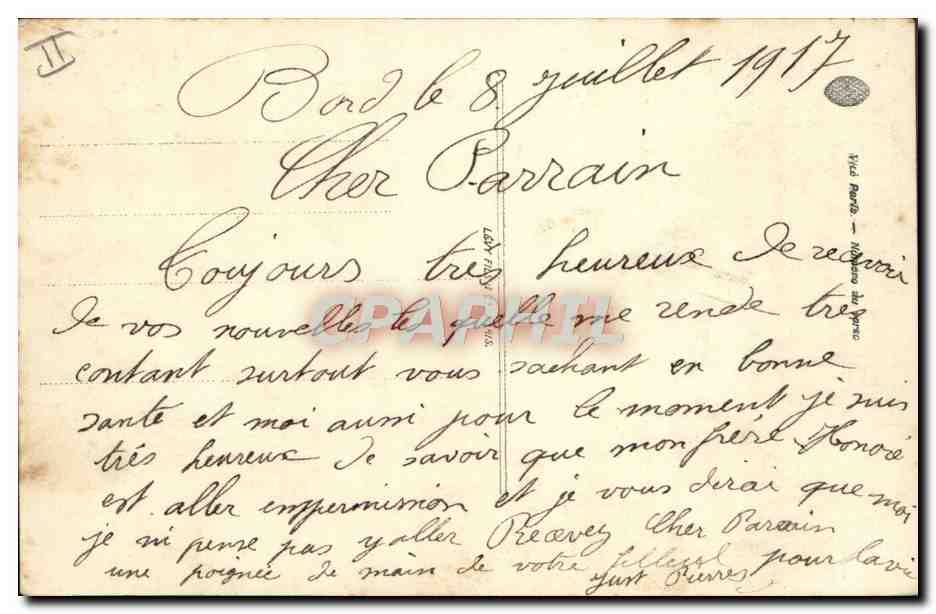 II
Bord le 8 juillet 1917
Cher Parrain
Toujours très heureux de recevoir
de vos nouvelles les quelle me rende très
contant surtout vous sachant en bonne
santé et moi aussi pour le moment je suis
très heureux de savoir que mon frère Honoré
est aller empermission et je vous dirai que moi
je ni pense pas y aller Recevez Cher Parrain
une poignée de main de votre filleul pour la vie
Just Pierres
LEVY FILS
CPAPHIL
Visé Paris. —